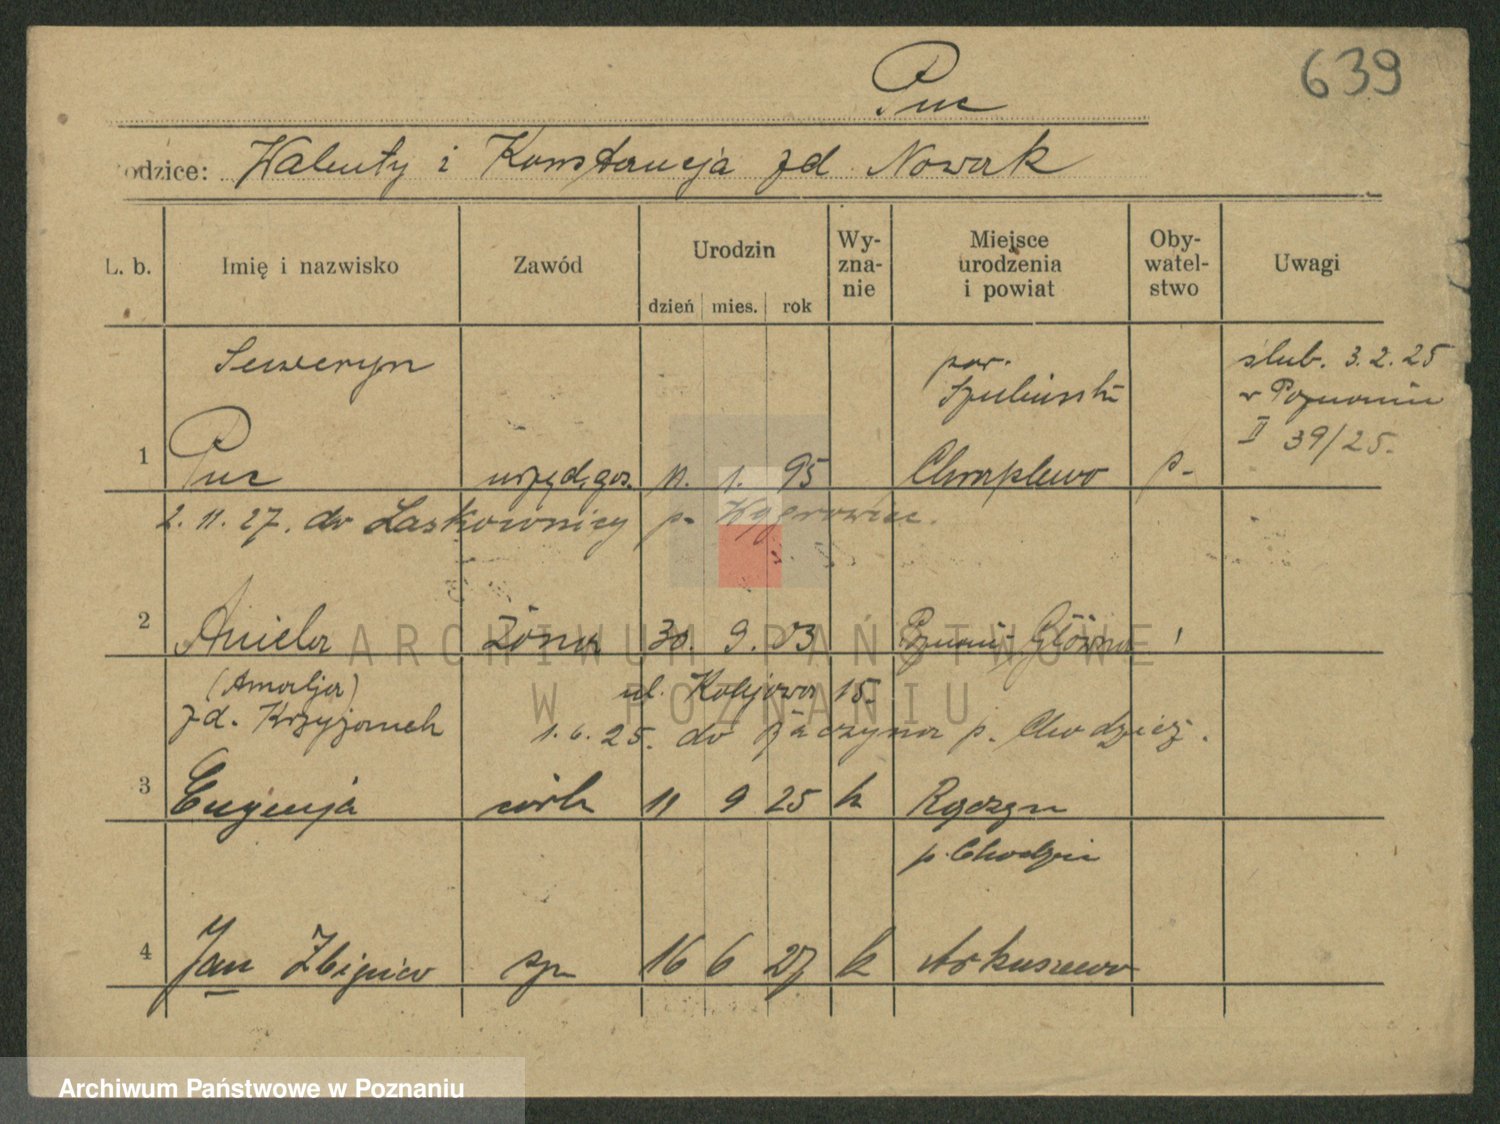 639
Puc
odzice: Walenty i Konstancja zd. Nowak
L. b. Imię i nazwisko Zawód Urodzin dzień mies. rok Wy-zna-nie Miejsce urodzenia i powiat Oby-watel-stwo Uwagi
Seweryn pow. ślub. 3.2.25
w Poznaniu
II 39/25.
1 Puc urzęd. gos. 11. 1. 95 Chraplewo p.
2. 11. 27. do Laskownicy p.
2 Aniela żona 30. 9. 03 Główna
ARCHIWUM PAŃSTWOWE
W POZNANIU
(Amalja) ul. Kolejowa 15.
zd. Krzyżanek 1. 6. 25. do p. Chodzież.
3 Eugenja córk 11 9 25 k Rączyn
p. Chodzież
4 Jan Zbigniew syn 16 6 27 k Arkuszewo
Archiwum Państwowe w Poznaniu